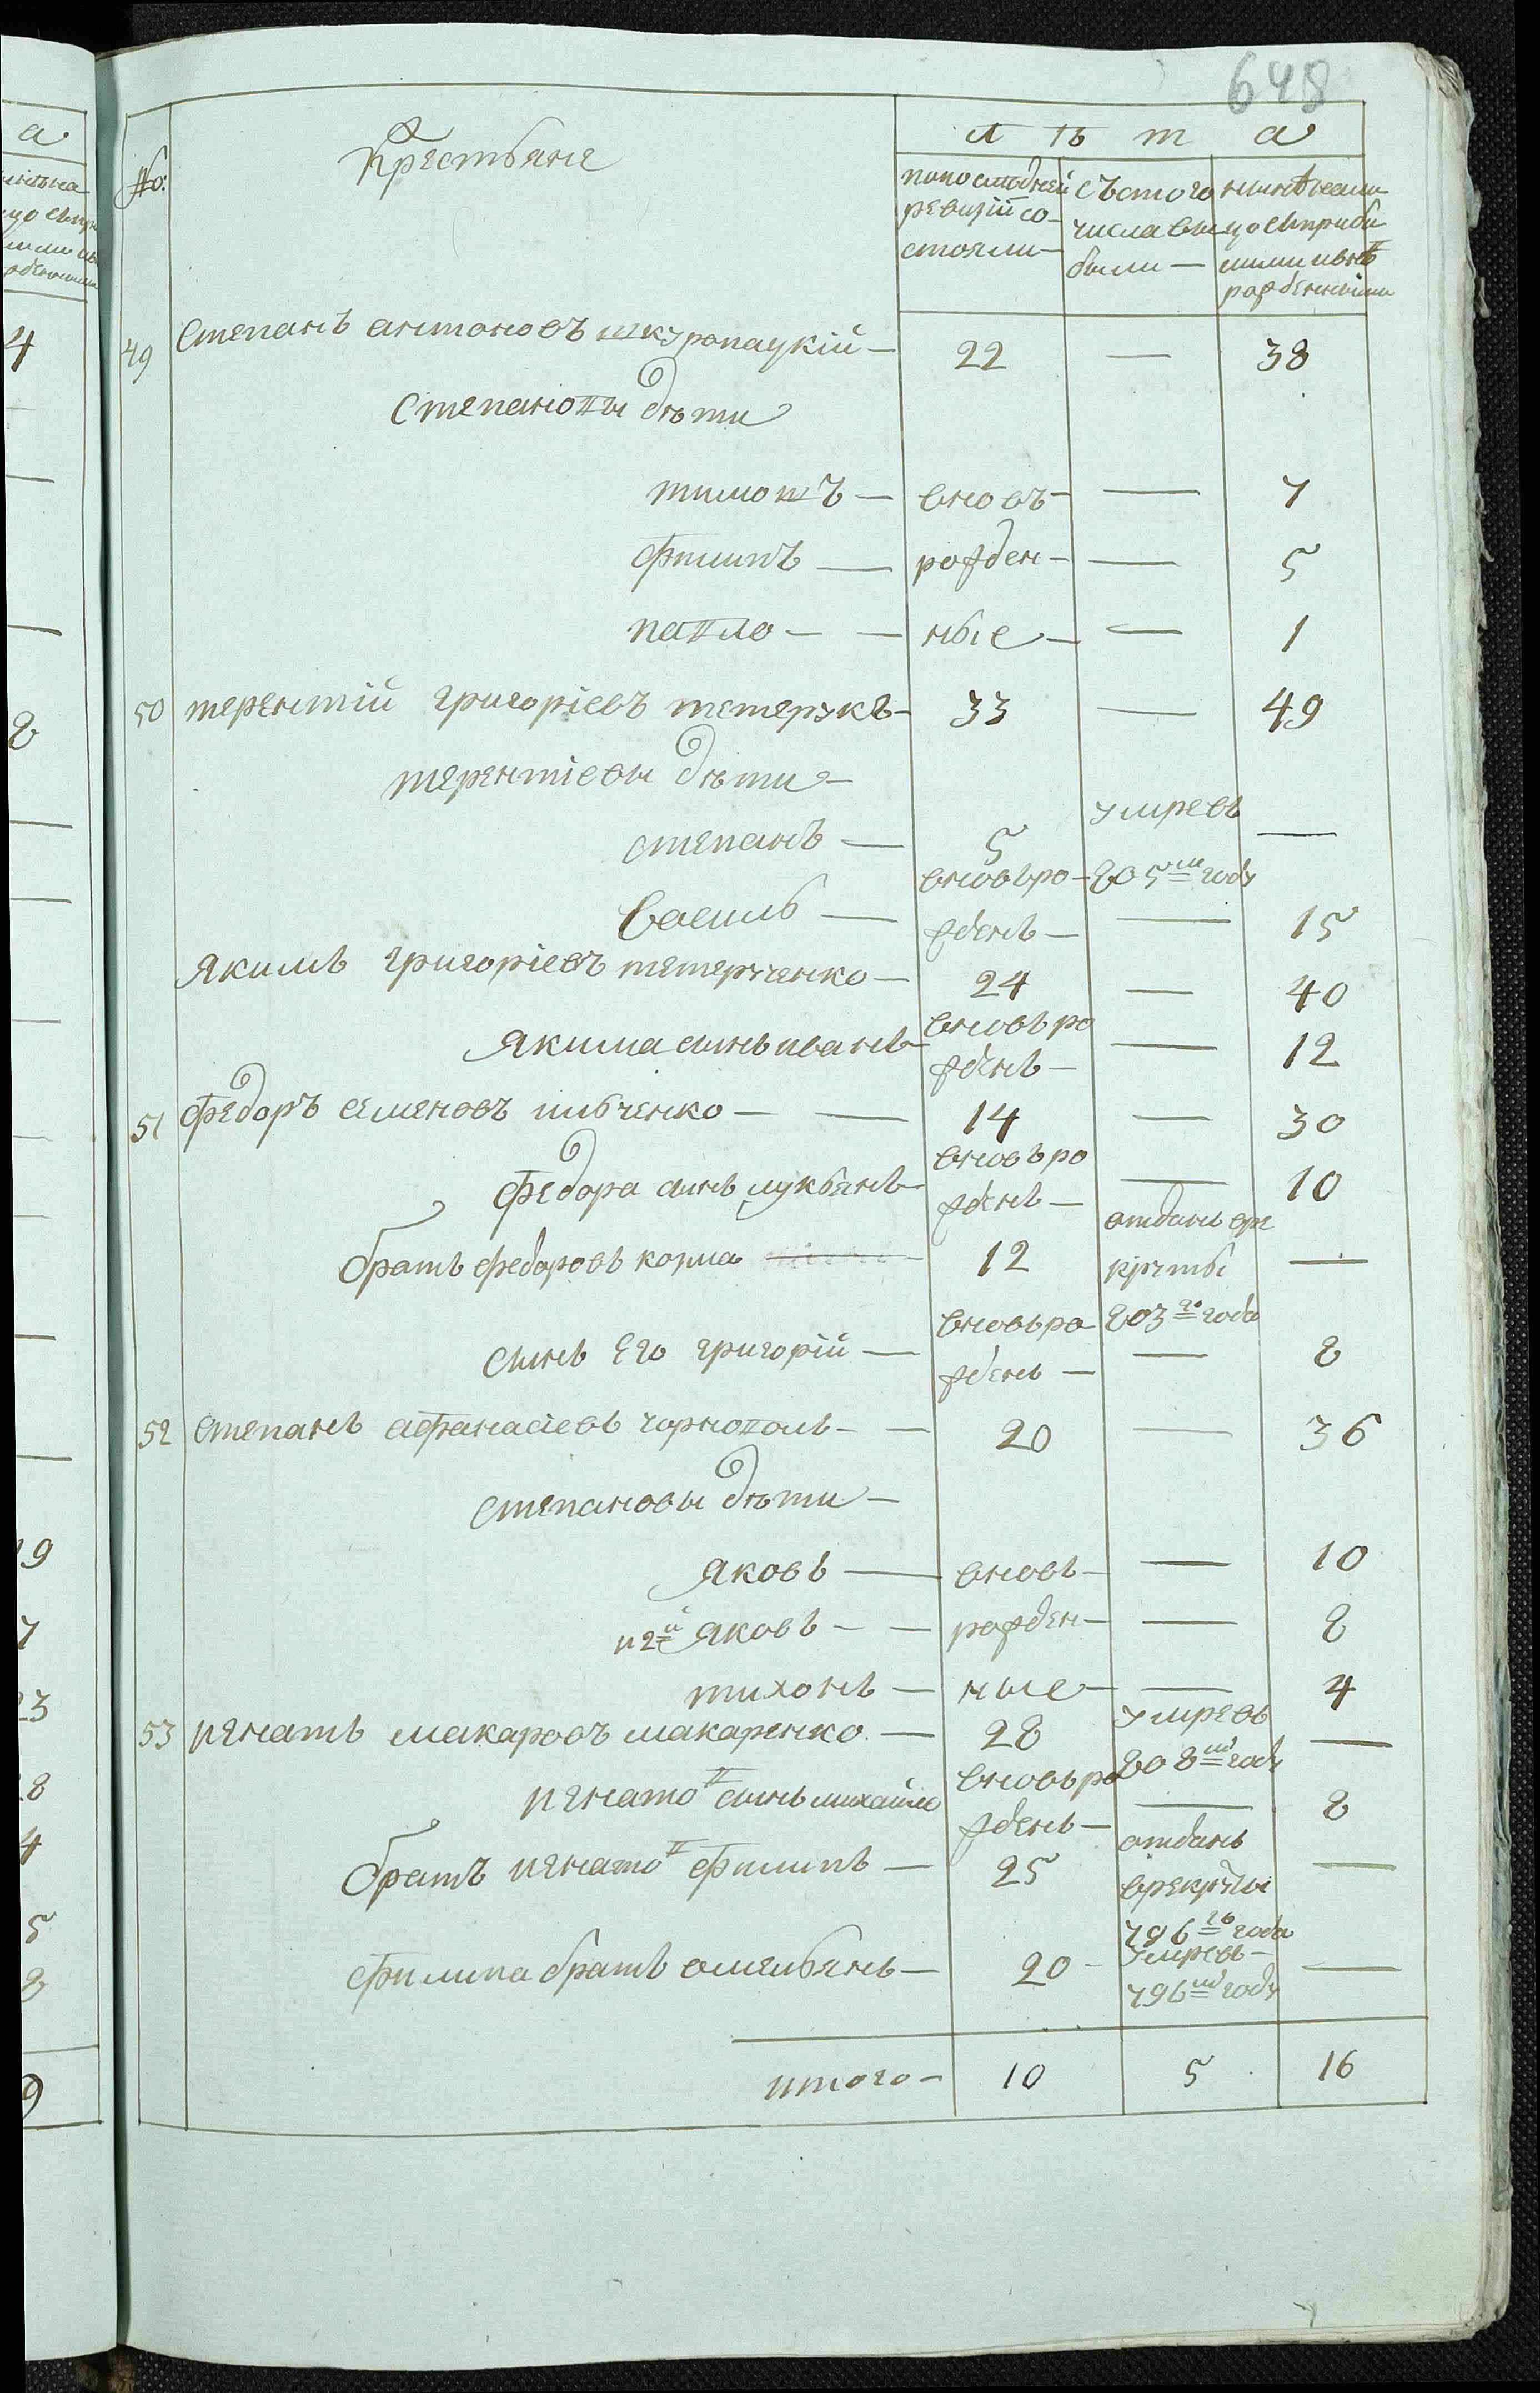 648
№: Крестьяне Л ѣ т а
попоследней ревизіи состояли — съ того числа выбыли — нынѣ налицо съприбылыми ивновь рожденными
49 Степанъ антоновъ шкуропацкій — 22 — 38
Степановы дѣти
тимошъ — вновъ — — 7
филипъ — рожден — — 5
павло — — ные — — 1
50 терентій григоріевъ тетерукъ — 33 — 49
терентіевы дѣти —
степанъ — 5 умревъ 805м году —
василь — вновь рожденъ — — 15
якимъ григоріевъ тетерученко — 24 — 40
якима сынъ иванъ — вновъ рожденъ — — 12
51 федоръ семеновъ шивченко — — 14 — 30
федора сынъ лукьянъ — вновъ рожденъ — — 10
братъ федоровъ корма — 12 отданъ врекруты 803го года —
сынъ его григорій — вновь рожденъ — — 8
52 степанъ афанасіевъ чорноволъ — — 20 — 36
степановы дѣти —
яковъ — вновъ — — 10
и 2й яковъ — — рожден — — 8
тихонъ — ные — — 4
53 игнатъ макаровъ макаренко — 28 умревъ 808м году —
игнатов сынъ михайло вновь рожденъ — — 8
братъ игнатов филипъ — 25 отданъ врекруты 796го года —
филипа братъ омельянъ — 20 — умревъ — 796м году —
итого — 10 5 16